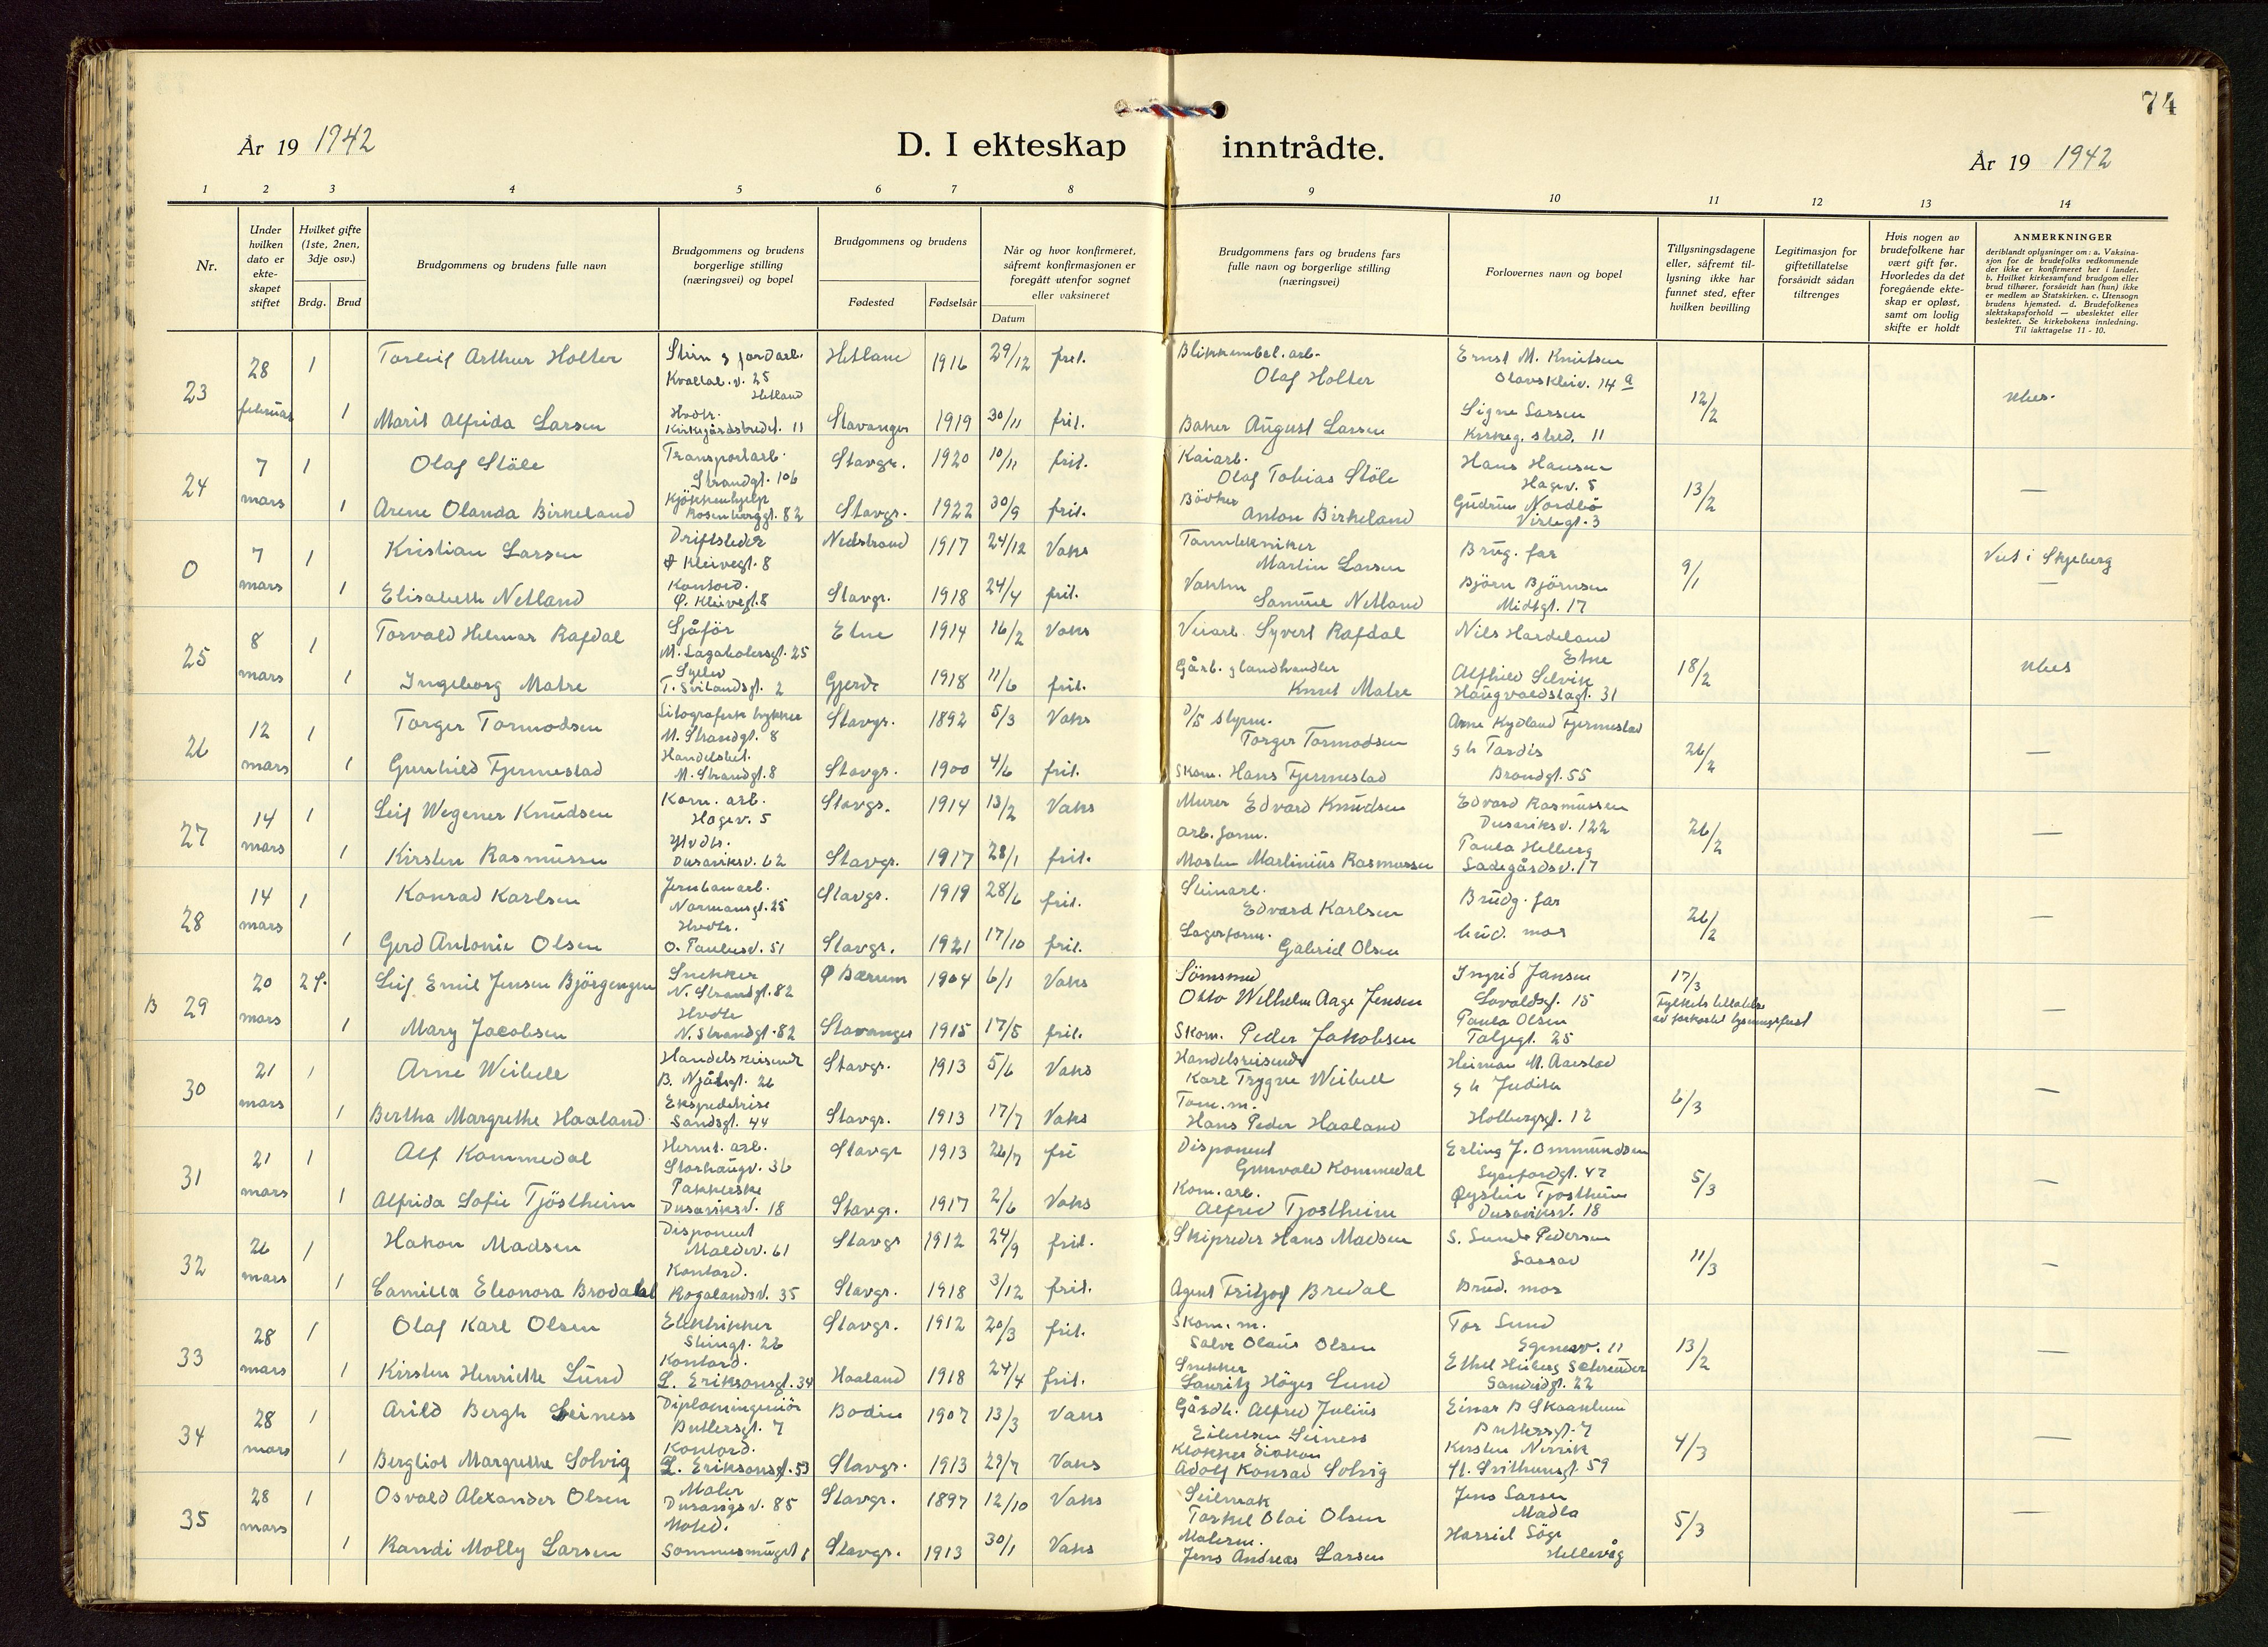 74
År 19 1942
D. I ekteskap inntrådte.
År 19 1942
1 2 3 4 5 6 7 8 9 10 11 12 13 14
Nr.
Under hvilken dato er ekte- skapet stiftet
Hvilket gifte (1ste, 2nen, 3dje osv.)
Brdg. Brud
Brudgommens og brudens fulle navn
Brudgommens og brudens borgerlige stilling (næringsvei) og bopel
Brudgommens og brudens
Fødested Fødselsår
Når og hvor konfirmeret, såfremt konfirmasjonen er foregått utenfor sognet eller vaksineret
Datum
Brudgommens fars og brudens fars fulle navn og borgerlige stilling (næringsvei)
Forlovernes navn og bopel
Tillysningsdagene eller, såfremt til- lysning ikke har funnet sted, efter hvilken bevilling
Legitimasjon for giftetillatelse forsåvidt sådan tiltrenges
Hvis nogen av brudefolkene har vært gift før. Hvorledes da det foregående ekte- skap er opløst, samt om lovlig skifte er holdt
ANMERKNINGER
deriblandt oplysninger om: a. Vaksina- sjon for de brudefolks vedkommende der ikke er konfirmeret her i landet. b. Hvilket kirkesamfund brudgom eller brud tilhører, forsåvidt han (hun) ikke er medlem av Statskirken. c. Utensogn brudens hjemsted. d. Brudefolkenes slektskapsforhold — ubeslektet eller beslektet. Se kirkebokens innledning. Til iakttagelse 11 - 10.
23 28 februar 1 Torleif Arthur Holter Hetland 1916 29/12 frit. Olaf Holter Ernst M. Knutsen
Kvalal. v. 25 Hetland Olavskleiv. 14 a
1 Marit Alfrida Larsen Hvdtr. Kirkegårdsbredet. 11 Stavanger 1919 30/11 frit. Baker August Larsen Signe Larsen Kirkeg. 11 12/2 ubes.
24 7 mars 1 Olaf Stöle Transportarb. Strandgt. 106 Stavgr. 1920 10/11 frit. Kaiarb. Olaf Tobias Stöle Hans Hansen Hagev. 5
1 Arene Olanda Birkeland Kjökkenhjelp Rosenberggt. 82 Stavgr. 1922 30/9 frit. Bödker Anton Birkeland Gudrun Nordbö 13/2 —
0 7 mars 1 Kristian Larsen Driftsleder Kleivegt. 8 Nedstrand 1917 24/12 Vaks Tanntekniker Martin Larsen Brug. far
1 Elisabeth Netland Kontord. Ø. Kleivegt. 8 Stavgr. 1918 24/4 frit. Samuel Netland Björn Björnsen Midtgt. 17 9/1 Viet i Skjeberg —
25 8 mars 1 Torvald Helmar Rafdal Sjåför M. Lagaholmsgt. 25 Etne 1914 16/2 Vaks Syvert Rafdal Nils Hardeland Etne
1 Ingeborg Matre T. Svilandsgt. 2 Gjerde 1918 11/6 frit. Gårb. g landhandler Knut Matre Alfhild Selvik Haugvaldstagt. 31 18/2 ubes
26 12 mars 1 Torger Tormodsen Litografisk trykker N. Strandgt. 8 Stavgr. 1892 5/3 Vaks D/S styrm. Torger Tormodsen Arne Kydland Fjermestad
1 Gunhild Fjermestad Handelsbet. N. Strandgt. 8 Stavgr. 1900 4/6 frit. Skom. Hans Fjermestad g h Tordis Brandgt. 55 26/2 —
27 14 mars 1 Leif Wegener Knudsen Kom. arb. Hagev. 5 Stavgr. 1914 13/2 Vaks Murer Edvard Knudsen Edvard Rasmussen Dusaviksv. 122
1 Kirsten Rasmussen Hvdtr. Dusaviksv. 62 Stavgr. 1917 28/1 frit. arb. form. Morten Martinius Rasmussen Paula Helberg Ladegårdsv. 17 26/2 —
28 14 mars 1 Konrad Karlsen Jernbanarb. Normannsgt. 25 Stavgr. 1919 28/6 frit. Steinarb. Edvard Karlsen Brudg. far
1 Gerd Antonie Olsen Hvdtr. O. Paulusv. 51 Stavgr. 1921 17/10 frit. Lagerform. Gabriel Olsen brud. mor 26/2 —
B 29 20 mars 2 f. Leif Emil Jensen Björgengen Snekker N. Strandgt. 82 Ø Bærum 1904 6/1 Vaks Sömsmed Otto Wilhelm Aage Jensen Ingrid Jansen Lovaldsgt. 15 17/3
1 Mary Jacobsen Hvdtr N. Strandgt. 82 Stavanger 1915 17/5 frit. Skom. Peder Jakobsen Paula Olsen Taljegt. 25 Fylkets tillatelse av forkortet lysningsfrist —
30 21 mars 1 Arne Weibell Handelsreisende B. Njålsgt. 26 Stavgr. 1913 5/6 Vaks Handelsreisende Karl Trygve Weibell Heiman M. Aarestad
1 Bertha Margrethe Haaland Ekspeditrise Sandsgt. 44 Stavgr. 1913 17/7 Vaks Hans Peder Haaland g h Judith Holbergsgt. 12 6/3 —
31 21 mars 1 Alf Kommedal Hermt. arb. Storhaugv. 36 Stavgr 1913 26/7 fri Disponent Gunvald Kommedal Erling J. Ommundsen
1 Alfrida Sofie Tjöstheim Pakkerske Dusaviksv. 18 Stavgr. 1917 2/6 Vaks Kom. arb. Alfred Tjostheim Øystein Tjostheim Dusaviksv. 18 5/3 —
32 26 mars 1 Hakon Madsen Disponent Maldev. 61 Stavgr 1912 24/9 frit. Skipreder Hans Madsen S. Sunde Pedersen
1 Camilla Eleonora Brodahl Kontord. Rogalandsv. 35 Stavgr. 1918 3/12 frit. Agent Fritjof Bredal Brud. mor 11/3 —
33 28 mars 1 Olaf Karl Olsen Elektriker Steingt. 26 Stavgr. 1912 20/3 frit. Skom. m. Salve Olaus Olsen Tor Lund Egenesv. 11
1 Kirsten Henriette Lund Kontord. L. Eriksonsgt. 34 Haaland 1918 24/4 frit. Snekker Lauritz Höyer Lund Ethel Heiberg Schreuder 22 13/2 —
34 28 mars 1 Arild Bergh Seiness Diplomingeniör Buttersgt. 7 Bodin 1907 13/3 Vaks Gårdb. Alfred Julius Eilertsen Seiness Einar B Skaanlum Buttersgt. 7
1 Bergliot Margrethe Solvig Kontord. L. Eriksonsgt. 53 Stavgr. 1913 29/7 Vaks Klokker diakon Adolf Konrad Solvig Kirsten Nervik St. Svithunsgt. 59 4/3 —
35 28 mars 1 Osvald Alexander Olsen Maler Dusavigsv. 85 Stavgr. 1897 12/10 Vaks Seilmak Torkel Olai Olsen Jens Larsen Madla
1 Randi Molly Larsen Stavgr. 1913 30/1 Vaks Malerm. Jens Andreas Larsen Hellevåg 5/3 —